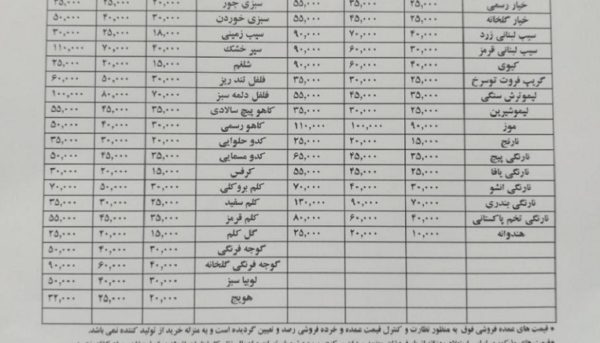 خیار رسمی ۲۵,۰۰۰ ۳۵,۰۰۰ ۵۵,۰۰۰ سبزی جور ۲۰,۰۰۰ ۲۵,۰۰۰ ۳۵,۰۰۰
خیار گلخانه ۲۵,۰۰۰ ۴۰,۰۰۰ ۵۵,۰۰۰ سبزی خوردن ۳۰,۰۰۰ ۴۰,۰۰۰ ۵۰,۰۰۰
سیب لبنانی زرد ۴۰,۰۰۰ ۷۰,۰۰۰ ۹۰,۰۰۰ سیب زمینی ۱۸,۰۰۰ ۲۵,۰۰۰ ۳۰,۰۰۰
سیب لبنانی قرمز ۳۰,۰۰۰ ۶۰,۰۰۰ ۹۰,۰۰۰ سیر خشک ۴۰,۰۰۰ ۷۰,۰۰۰ ۱۱۰,۰۰۰
کیوی ۴۰,۰۰۰ ۶۰,۰۰۰ ۹۰,۰۰۰ شلغم ۱۵,۰۰۰ ۲۰,۰۰۰ ۲۵,۰۰۰
گریپ فروت توسرخ ۲۵,۰۰۰ ۳۰,۰۰۰ ۳۵,۰۰۰ فلفل تند ریز ۳۰,۰۰۰ ۵۰,۰۰۰ ۶۰,۰۰۰
لیموترش سنگی ۳۵,۰۰۰ ۴۵,۰۰۰ ۵۵,۰۰۰ فلفل دلمه سبز ۷۰,۰۰۰ ۸۰,۰۰۰ ۱۰۰,۰۰۰
لیموشیرین ۲۵,۰۰۰ ۳۰,۰۰۰ ۳۵,۰۰۰ کاهو پیچ سالادی ۳۵,۰۰۰ ۴۵,۰۰۰ ۵۵,۰۰۰
موز ۹۰,۰۰۰ ۱۰۰,۰۰۰ ۱۱۰,۰۰۰ کاهو رسمی ۳۰,۰۰۰ ۴۰,۰۰۰ ۵۰,۰۰۰
نارنج ۱۵,۰۰۰ ۲۰,۰۰۰ ۲۵,۰۰۰ کدو حلوایی ۲۰,۰۰۰ ۳۰,۰۰۰ ۳۵,۰۰۰
نارنگی پیچ ۳۵,۰۰۰ ۴۵,۰۰۰ ۶۵,۰۰۰ کدو مسمایی ۳۵,۰۰۰ ۴۵,۰۰۰ ۵۰,۰۰۰
نارنگی یافا ۲۵,۰۰۰ ۴۵,۰۰۰ ۵۵,۰۰۰ کرفس ۱۵,۰۰۰ ۲۰,۰۰۰ ۳۰,۰۰۰
نارنگی انشو ۳۰,۰۰۰ ۴۰,۰۰۰ ۷۰,۰۰۰ کلم بروکلی ۳۰,۰۰۰ ۵۰,۰۰۰ ۷۰,۰۰۰
نارنگی بندری ۷۰,۰۰۰ ۹۰,۰۰۰ ۱۳۰,۰۰۰ کلم سفید ۲۵,۰۰۰ ۳۰,۰۰۰ ۳۵,۰۰۰
نارنگی تخم پاکستانی ۴۰,۰۰۰ ۶۰,۰۰۰ ۸۰,۰۰۰ کلم قرمز ۳۵,۰۰۰ ۴۵,۰۰۰ ۵۵,۰۰۰
هندوانه ۱۰,۰۰۰ ۲۰,۰۰۰ ۲۵,۰۰۰ گل کلم ۱۵,۰۰۰ ۲۰,۰۰۰ ۲۵,۰۰۰
گوجه فرنگی ۳۰,۰۰۰ ۴۰,۰۰۰ ۵۰,۰۰۰
گوجه فرنگی گلخانه ۴۰,۰۰۰ ۶۰,۰۰۰ ۹۰,۰۰۰
لوبیا سبز ۳۰,۰۰۰ ۴۰,۰۰۰ ۵۰,۰۰۰
هویج ۲۰,۰۰۰ ۲۵,۰۰۰ ۳۲,۰۰۰
* قیمت های عمده فروشی فوق به منظور نظارت و کنترل قیمت عمده و خرده فروشی رصد و تعیین گردیده است و به منزله خرید از تولید کننده نمی باشد.